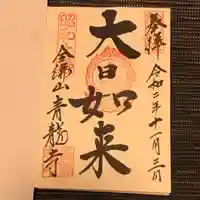 奉拝
令和二年十一月三日
大日如来
金㴞山青龍寺